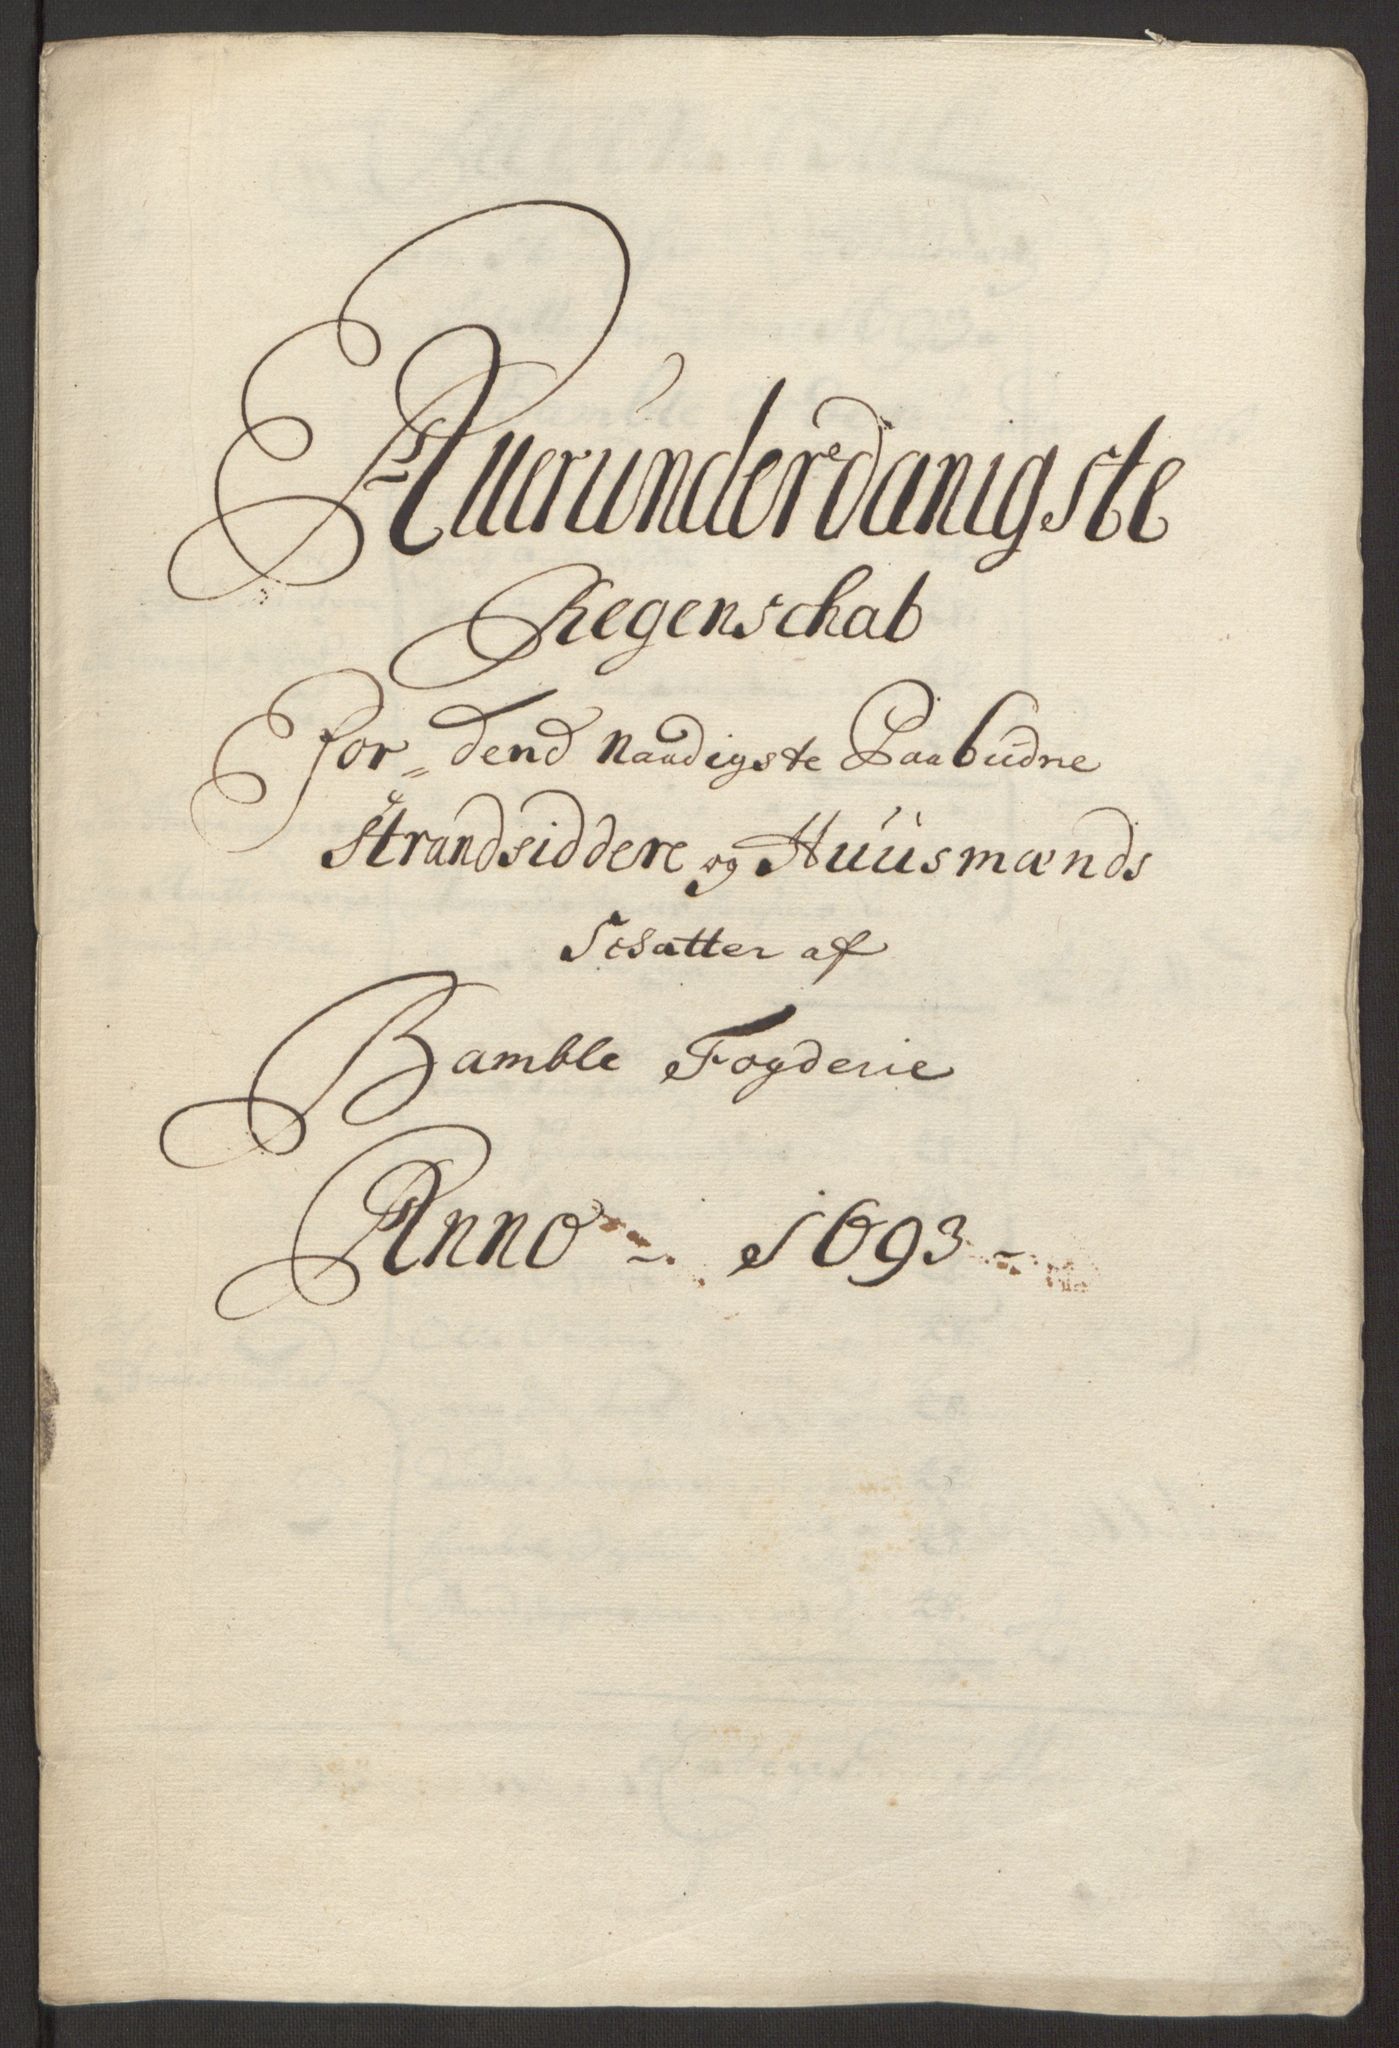 Allerunderdanigste
Regenschab
For dend Naadigste Paabudne
Strandsiddere og Huusmænds
Schatter af
Bamble Fogderie
Anno - 1693 -